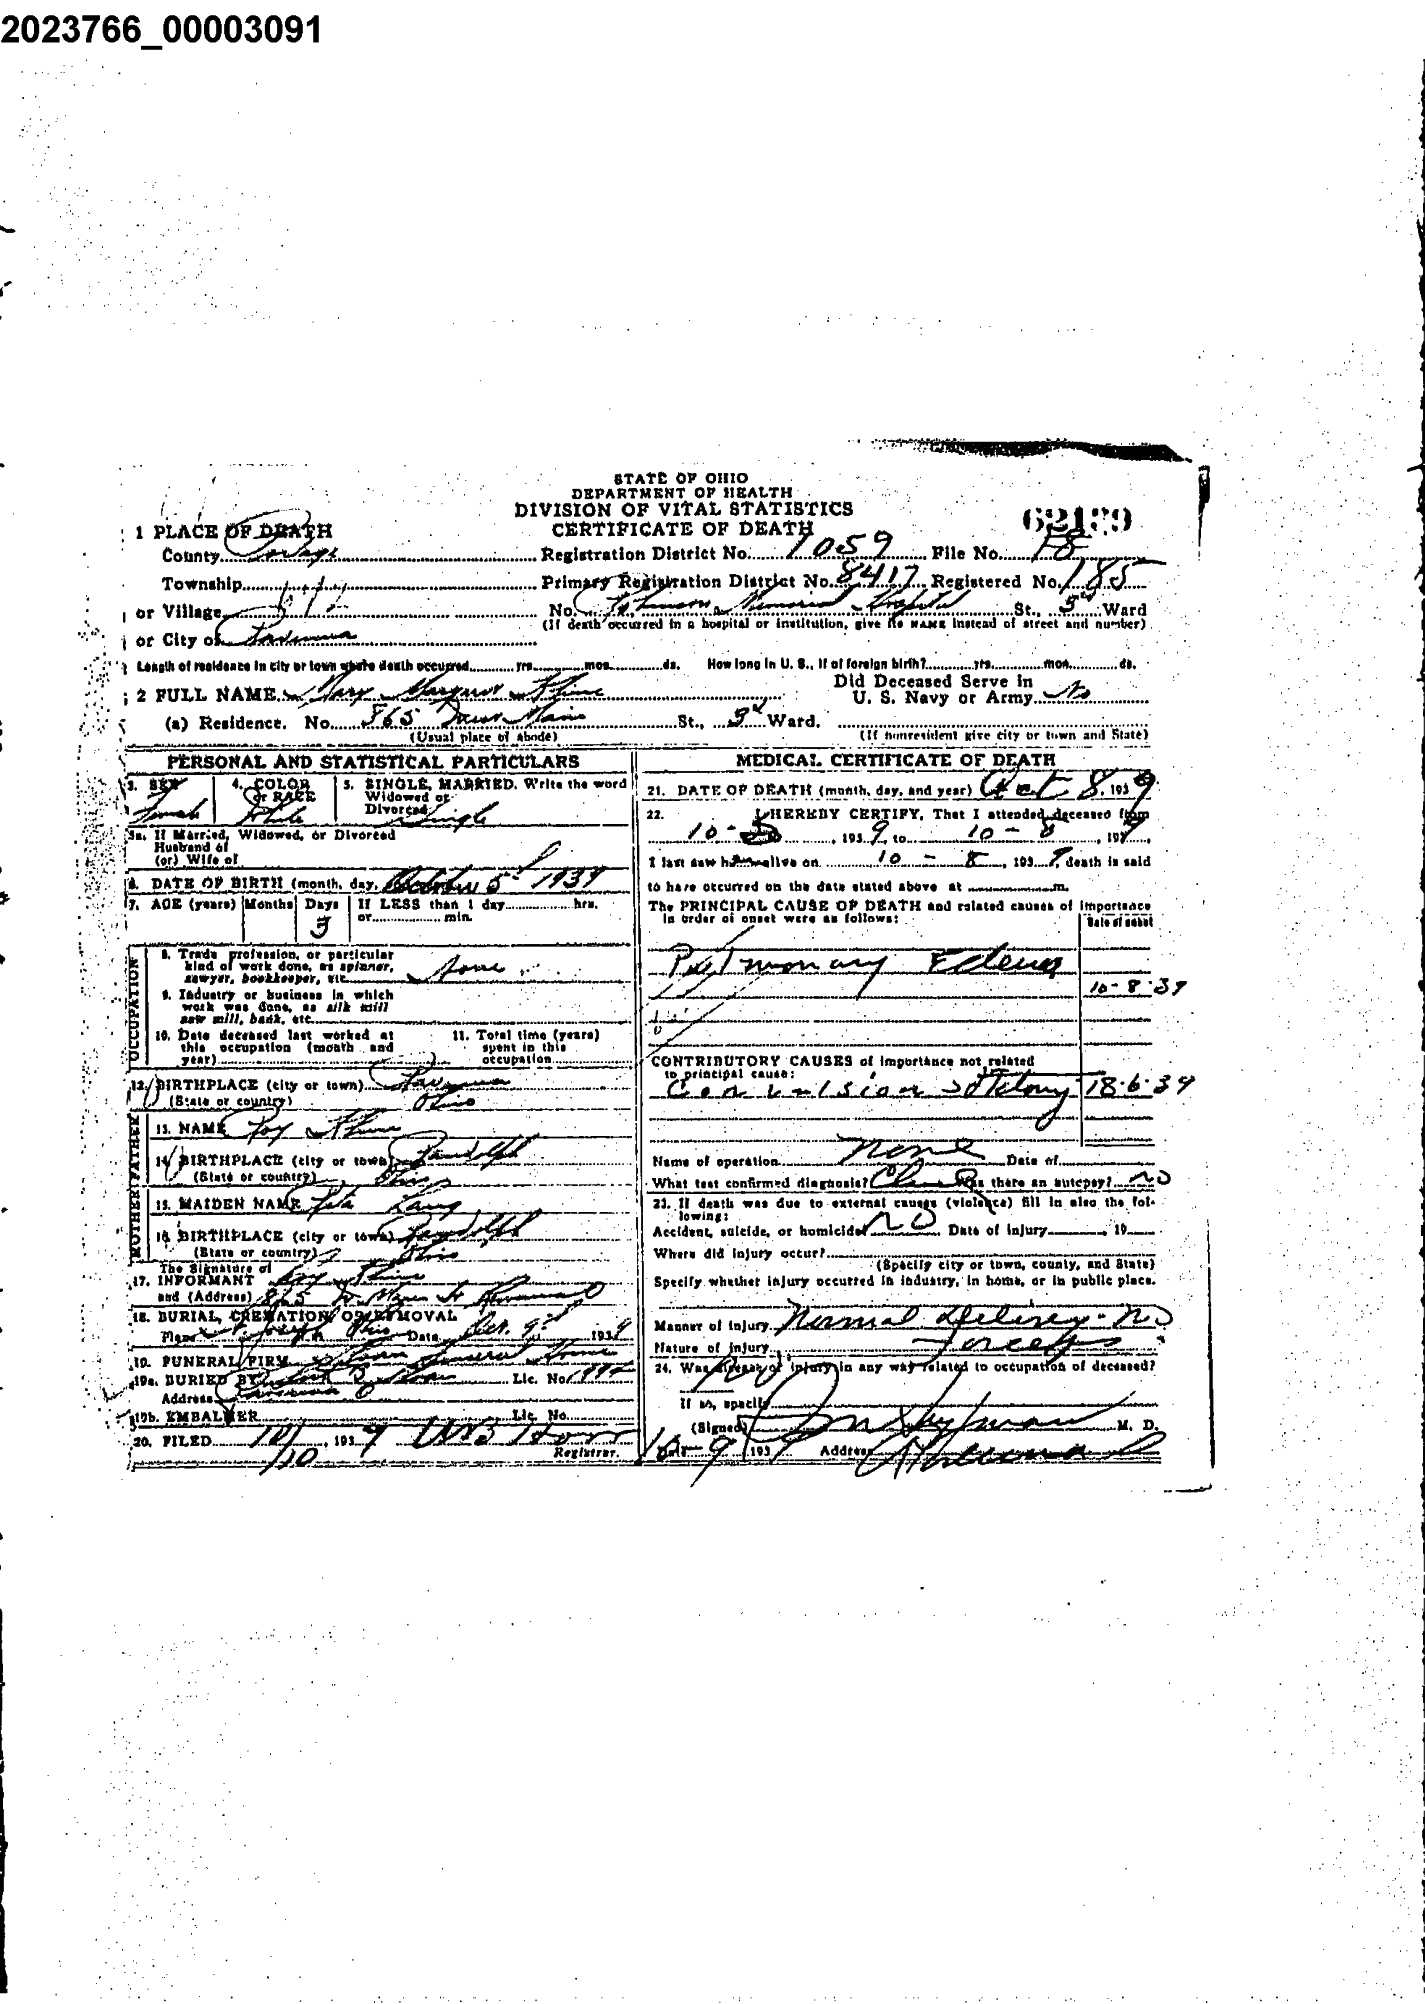 2023766_00003091
STATE OF OHIO
DEPARTMENT OF HEALTH
DIVISION OF VITAL STATISTICS
CERTIFICATE OF DEATH
62139
1 PLACE OF DEATH
County Portage Registration District No. 1059 File No. 18
Township Primary Registration District No. 8417 Registered No. 185
or Village No. Robinson Memorial Hospital St., 5 Ward
(If death occurred in a hospital or institution, give its NAME instead of street and number)
or City of Ravenna
Length of residence in city or town where death occurred yrs. mos. ds. How long in U. S., if of foreign birth? yrs. mos. ds.
2 FULL NAME Mary Rhine
Did Deceased Serve in
U. S. Navy or Army No
(a) Residence. No. 865 Main St., 3d Ward.
(Usual place of abode) (If nonresident give city or town and State)
PERSONAL AND STATISTICAL PARTICULARS
3. SEX Female
4. COLOR or RACE White
5. SINGLE, MARRIED, Write the word
Widowed or
Divorced Single
5a. If Married, Widowed, or Divorced
Husband of
(or) Wife of
6. DATE OF BIRTH (month, day, October 5 1939
7. AGE (years) Months Days 3 If LESS than 1 day hrs.
or min.
OCCUPATION
8. Trade profession, or particular
kind of work done, as spinner,
sawyer, bookkeeper, etc. None
9. Industry or business in which
work was done, as silk mill
saw mill, bank, etc.
10. Date deceased last worked at
this occupation (month and
year)
11. Total time (years)
spent in this
occupation
12. BIRTHPLACE (city or town) Ravenna
(State or country) Ohio
FATHER
13. NAME Roy Rhine
14. BIRTHPLACE (city or town) Randolph
(State or country) Ohio
MOTHER
15. MAIDEN NAME Rita Lang
16. BIRTHPLACE (city or town) Randolph
(State or country) Ohio
The Signature of
17. INFORMANT Roy Rhine
and (Address) 865 W. Main St Ravenna O
18. BURIAL, CREMATION OR REMOVAL
Place St. Joseph Ohio Date Oct. 9 1939
19. FUNERAL FIRM Funeral Home
19a. BURIED BY Lic. No.
Address Ravenna O
19b. EMBALMER Lic. No.
20. FILED 10/10, 1939 Registrar.
MEDICAL CERTIFICATE OF DEATH
21. DATE OF DEATH (month, day, and year) Oct 8, 1939
22. I HEREBY CERTIFY, That I attended deceased from
10-5, 1939, to 10-8, 1939,
I last saw her alive on 10-8, 1939, death is said
to have occurred on the date stated above at m.
The PRINCIPAL CAUSE OF DEATH and related causes of importance
in order of onset were as follows: Date of onset
Pulmonary Edema
10-8-39
CONTRIBUTORY CAUSES of importance not related
to principal cause:
Convulsion 18-6-39
Name of operation None Date of
What test confirmed diagnosis? Was there an autopsy? No
23. If death was due to external causes (violence) fill in also the fol-
lowing:
Accident, suicide, or homicide? NO Date of injury , 19
Where did injury occur?
(Specify city or town, county, and State)
Specify whether injury occurred in industry, in home, or in public place.
Manner of injury Normal delivery - no
Nature of injury forceps
24. Was disease or injury in any way related to occupation of deceased?
No
If so, specify
(Signed) M. D.
Date 10-9 1939 Address Ravenna O